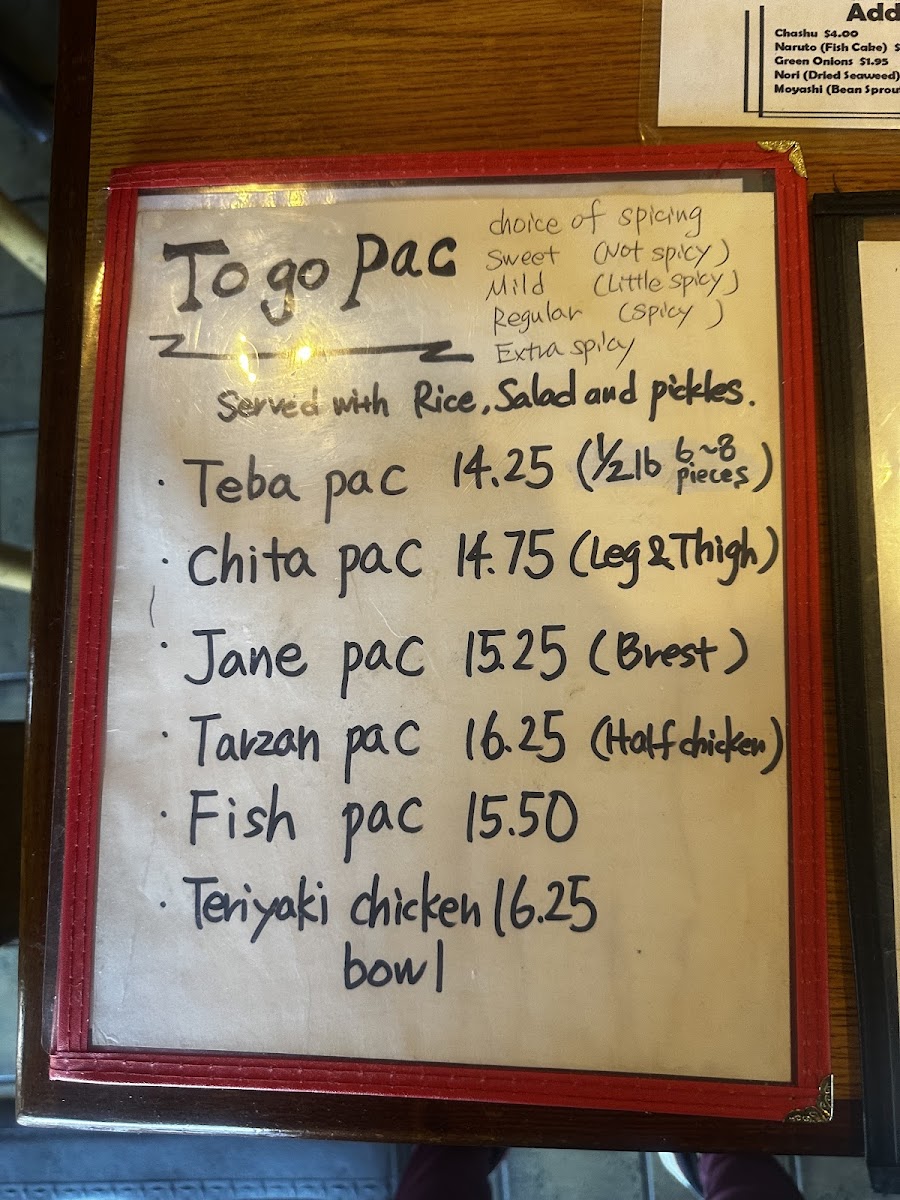 Add
Chashu $4.00
Naruto (Fish Cake) $
Green Onions $1.95
Nori (Dried Seaweed)
Moyashi (Bean Sprou
To go pac
choice of spicing
Sweet (Not spicy)
Mild (Little spicy)
Regular (spicy)
Extra spicy
Served with Rice, Salad and pickles.
· Teba pac 14.25 (1/2 lb 6~8 pieces)
· Chita pac 14.75 (Leg & Thigh)
· Jane pac 15.25 (Brest)
· Tarzan pac 16.25 (Half chicken)
· Fish pac 15.50
· Teriyaki chicken 16.25
bowl